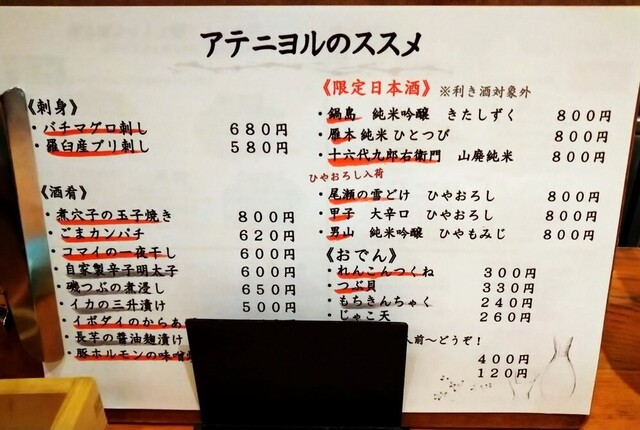 アテニヨルのススメ
《刺身》
・バチマグロ刺し 680円
・羅臼産ブリ刺し 580円
《酒肴》
・煮穴子の玉子焼き 800円
・ごまカンパチ 620円
・コマイの一夜干し 600円
・自家製辛子明太子 600円
・磯つぶの煮浸し 650円
・イカの三升漬け 500円
・イボダイのからあ
・長芋の醤油麹漬け
・豚ホルモンの味噌
《限定日本酒》 ※利き酒対象外
・鍋島 純米吟醸 きたしずく 800円
・雁木 純米 ひとつび 800円
・十六代九郎右衛門 山廃純米 800円
ひやおろし入荷
・尾瀬の雪どけ ひやおろし 800円
・甲子 大辛口 ひやおろし 800円
・男山 純米吟醸 ひやもみじ 800円
《おでん》
・れんこんつくね 300円
・つぶ貝 330円
・もちきんちゃく 240円
・じゃこ天 260円
人前～どうぞ！
400円
120円